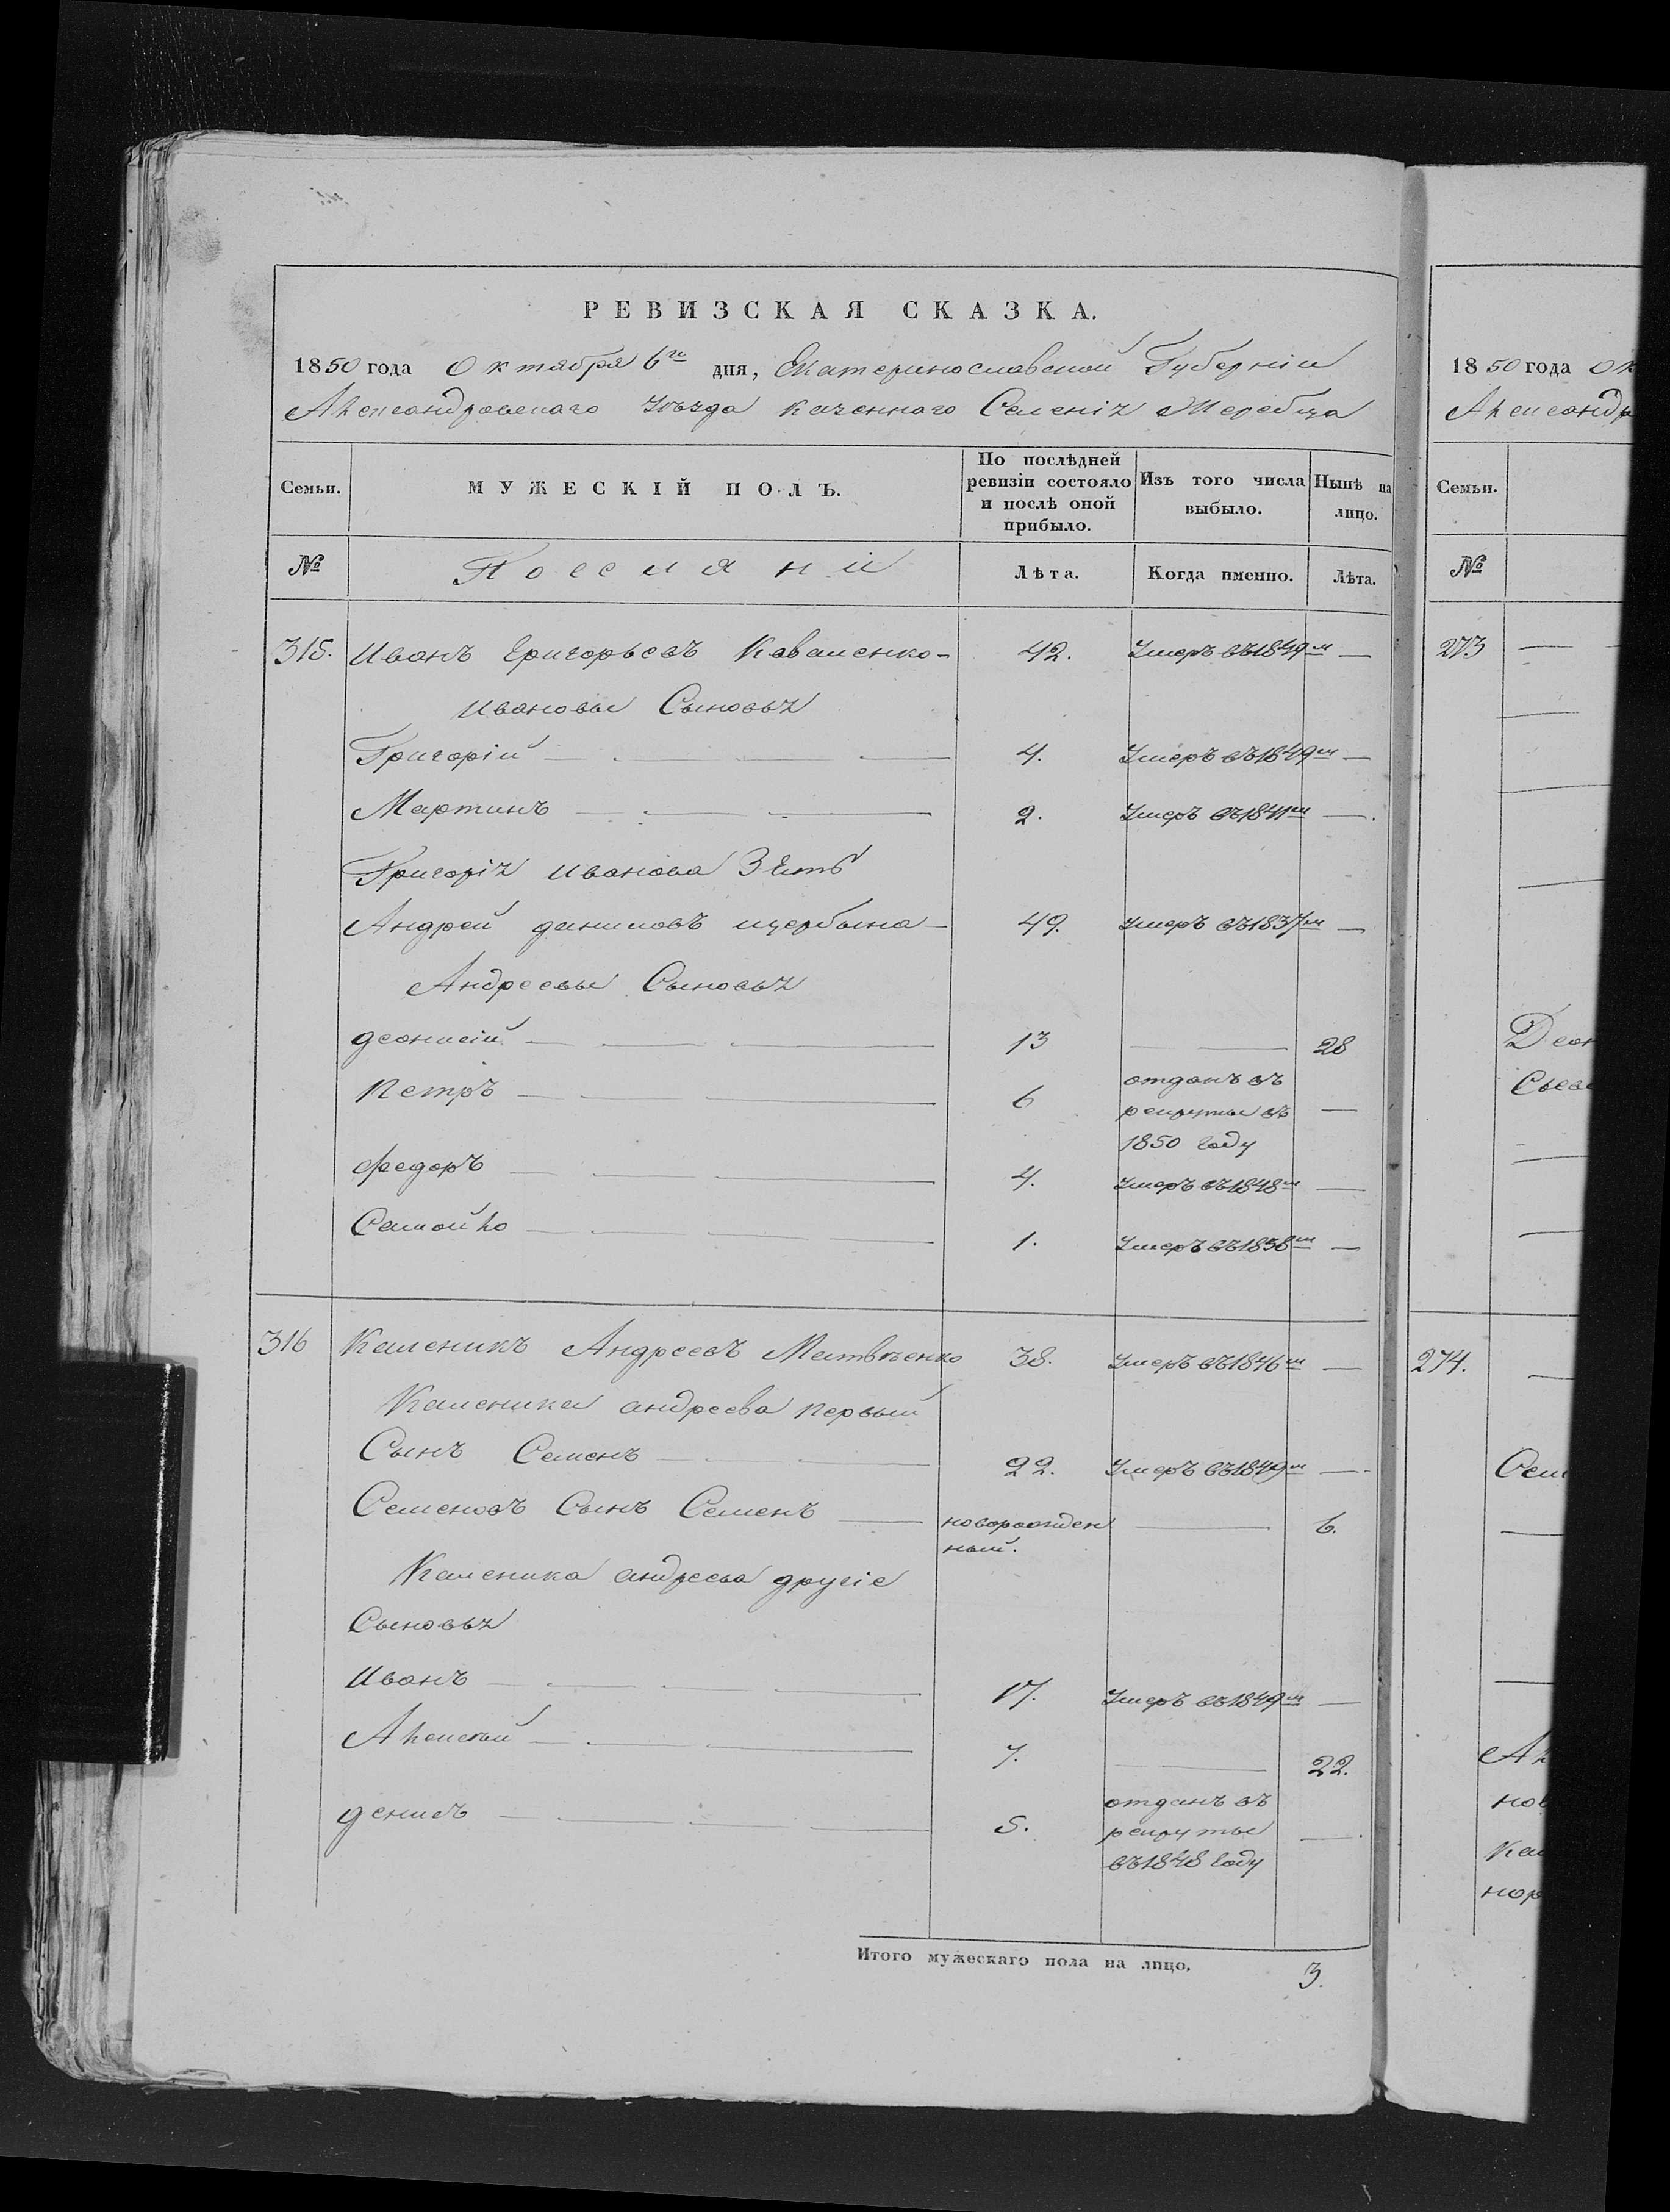 РЕВИЗСКАЯ СКАЗКА.
1850 года Октября 6го дня, Екатеринославской Губерніи
Александровскаго Уѣзда казеннаго Селенія Жеребца
Семьи. МУЖЕСКІЙ ПОЛЪ. По послѣдней ревизіи состояло и послѣ оной прибыло. Изъ того числа выбыло. Нынѣ на лицо.
№ Поселяни Лѣта. Когда именно. Лѣта.
315. Иванъ Григорьевъ Коваленко- 42. Умеръ въ 1849м —
Ивановы Сыновья
Григорій — 4. Умеръ въ 1849м —
Мартинъ — 2. Умеръ въ 1841м —.
Григорія Иванова Зять
Андрей даниловъ щербына — 49. Умеръ въ 1837м —
Андреевы Сыновья
деонисій — 13 — 28
Петръ — 6 отданъ въ
рекруты въ —
1850 году
федоръ — 4. Умеръ въ 1848м —
Самойло — 1. Умеръ въ 1838м —
316 Каленикъ Андреевъ Матвѣенко 38. Умеръ въ 1846м —
Каленика андреева первый
Сынъ Семенъ — 22. Умеръ въ 1849м —.
Семеновъ Сынъ Семенъ — новорожден — 6.
ный.
Каленика андреева другіе
Сыновья
Иванъ — 17. Умеръ въ 1849м —
Алексый — 7. — 22.
денисъ — 5. отданъ въ
рекруты —.
въ 1848 году
Итого мужескаго пола на лицо. 3.
1850 года Ок
Александр
Семьи.
№
273 —
Деон
274.
Сем
Ал
нов
Кал